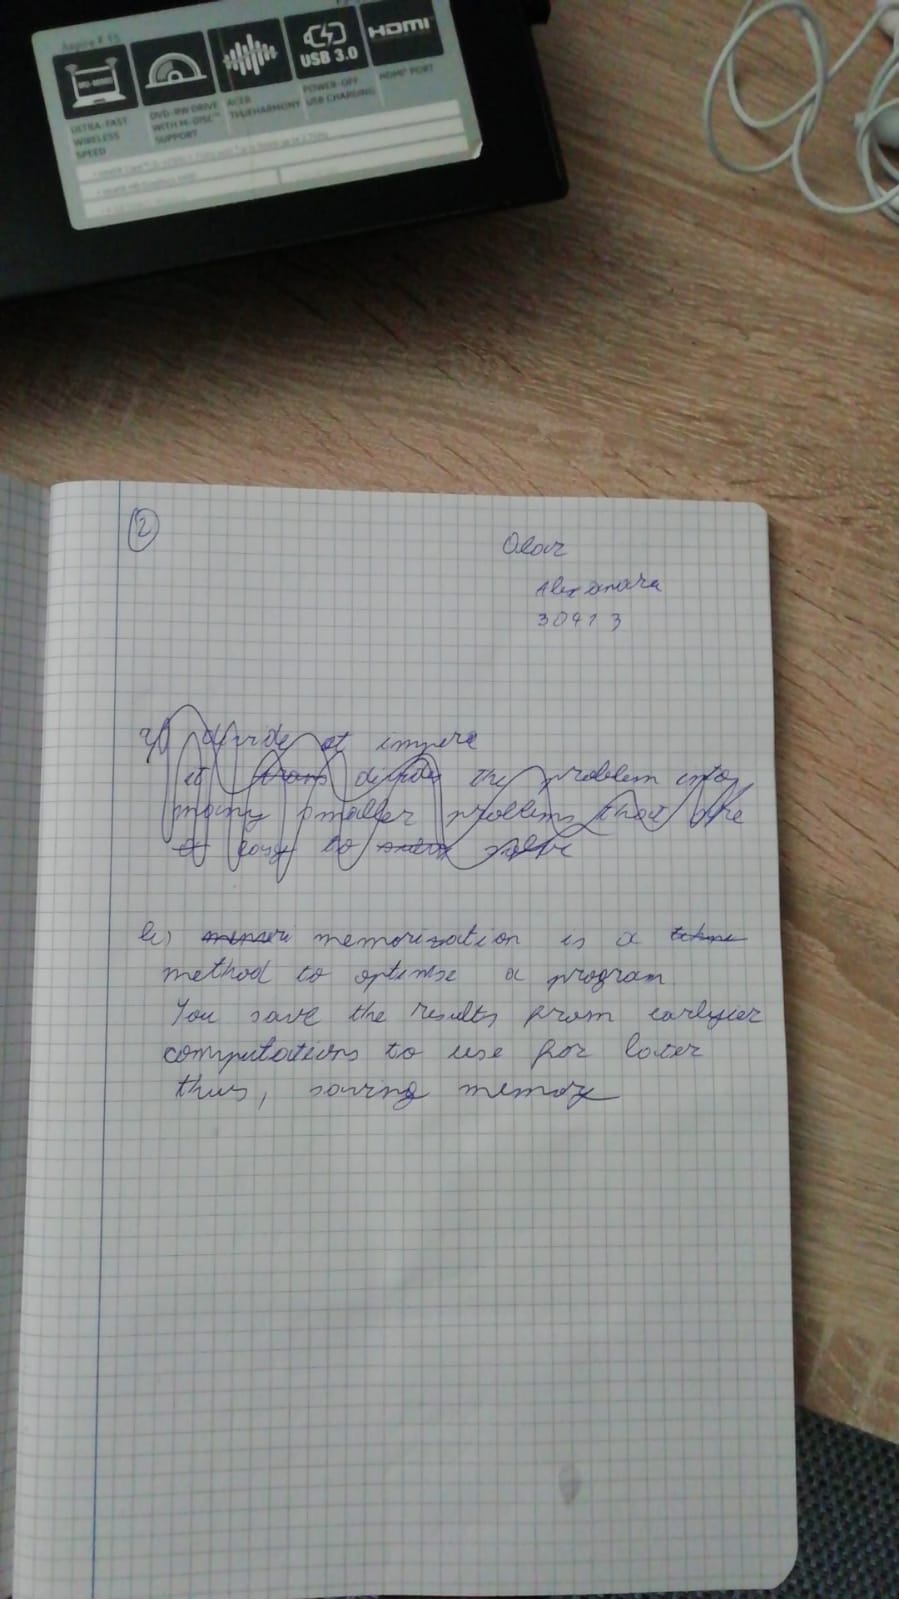 Aspire F 15
HDMI
USB 3.0
ULTRA-FAST
WIRELESS
SPEED
DVD-RW DRIVE
WITH M-DISC™
SUPPORT
ACER
TRUEHARMONY
POWER-OFF
USB CHARGING
HDMI® PORT
2
Olar
Alexandra
30413
a) divide et impera
it divides the problem into
many smaller problems that are
easy to solve
b) memorization is a
method to optimise a program
You save the results from earlyier
computations to use for later
thus, saving memory